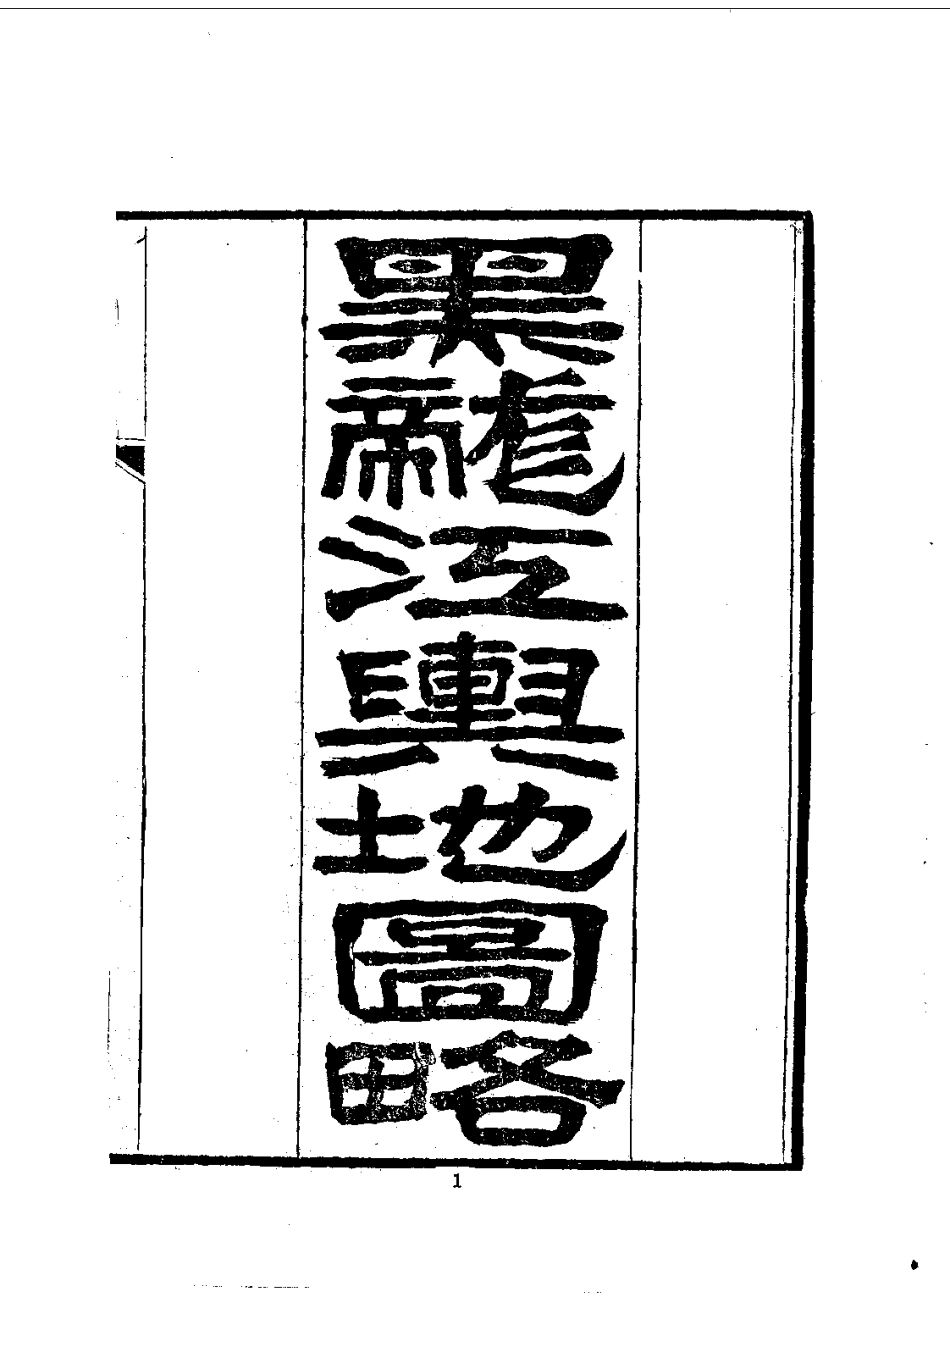 黑龍江輿地圖略
1